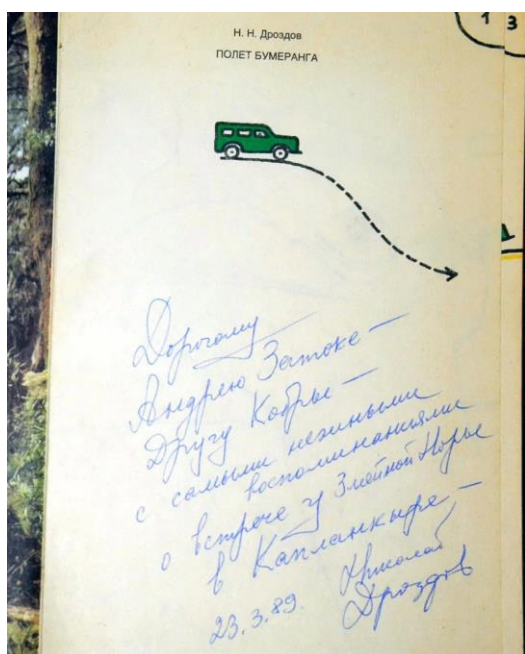 1 3
Н. Н. Дроздов
ПОЛЕТ БУМЕРАНГА
Дорогому
Андрею Затоке –
Другу Кобры –
с самыми нежными
воспоминаниями
о встрече у Змеиной Норы
в Капланкыре, –
Николай
23.3.89. Дроздов